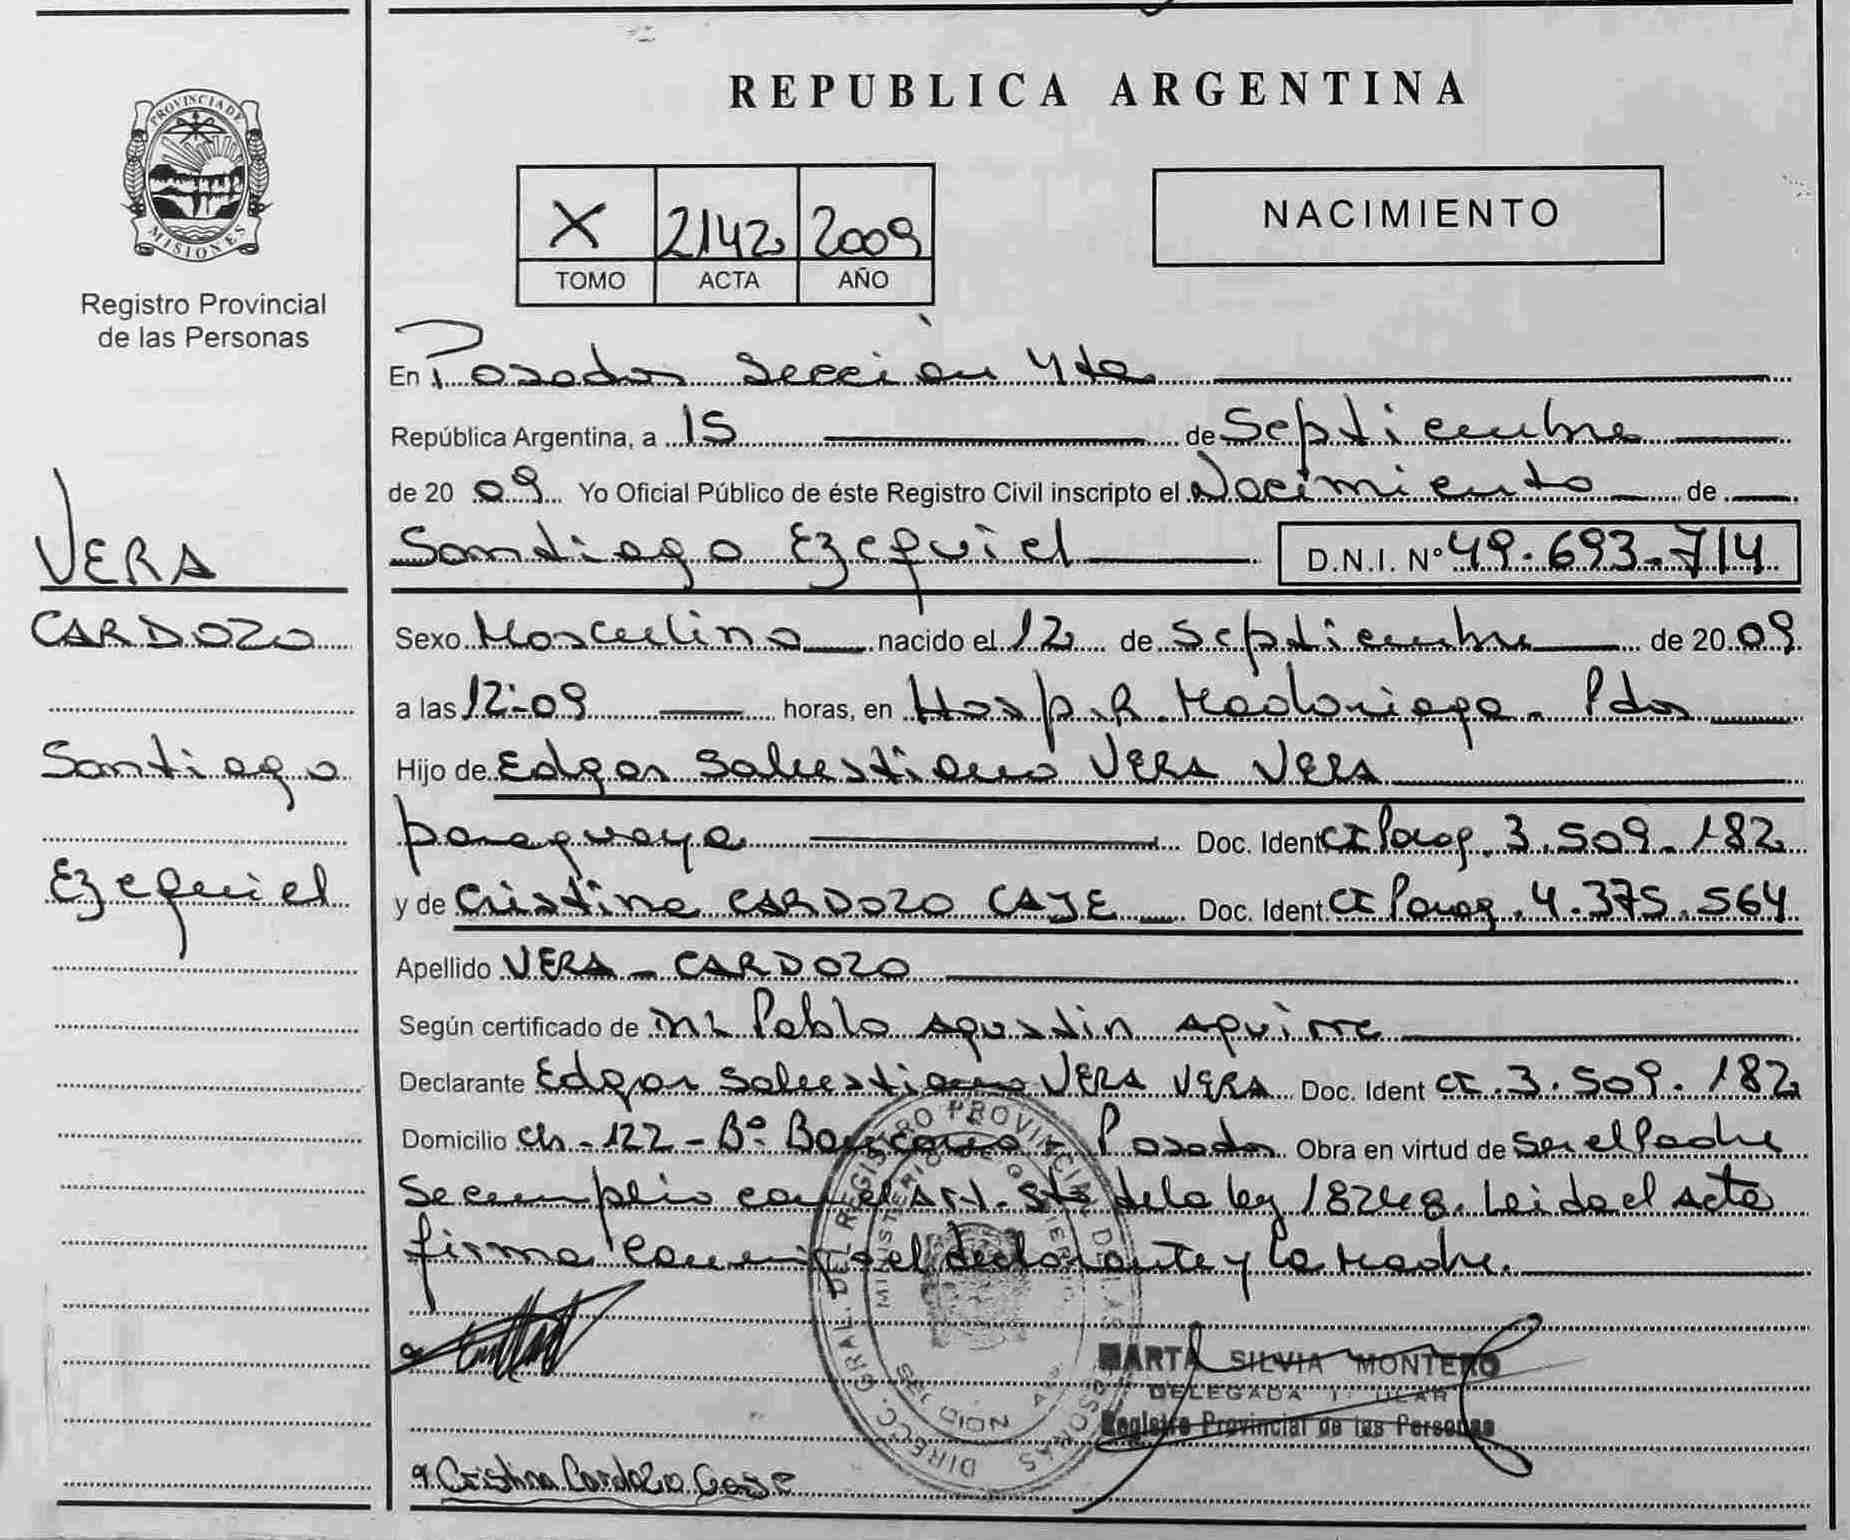 PROVINCIA DE
MISIONES
Registro Provincial
de las Personas
VERA
CARDOZO
Santiago
Ezequiel
REPUBLICA ARGENTINA
X 2142 2009
TOMO ACTA AÑO
NACIMIENTO
En Posadas Sección 4ta
República Argentina, a 15 de Septiembre
de 20 09 Yo Oficial Público de éste Registro Civil inscripto el Nacimiento de
Santiago Ezequiel D.N.I. Nº 49.693.714
Sexo Masculino nacido el 12 de Septiembre de 20 09
a las 12:09 horas, en Hosp. R. Madariaga - Pdas
Hijo de Edgar Salustiano VERA VERA
paraguaya Doc. Ident CI Parag. 3.509.182
y de Cristina CARDOZO CAJE Doc. Ident. CI Parag. 4.375.564
Apellido VERA - CARDOZO
Según certificado de Pablo Agustin Aguirre
Declarante Edgar Salustiano VERA VERA Doc. Ident CI. 3.509.182
Domicilio Ch - 122 - Bº - Posadas Obra en virtud de Ser el Padre
Se cumplio con el Art. 5to de la ley 18248. Leida el Acta
firma conmigo el declarante y la Madre.
DIRECC. GRAL. DEL REGISTRO PROVINCIAL DE LAS PERSONAS
MINISTERIO DE GOBIERNO
MISIONES
MARTA SILVIA MONTERO
DELEGADA TITULAR
Registro Provincial de las Personas
Cristina Cardozo Caje